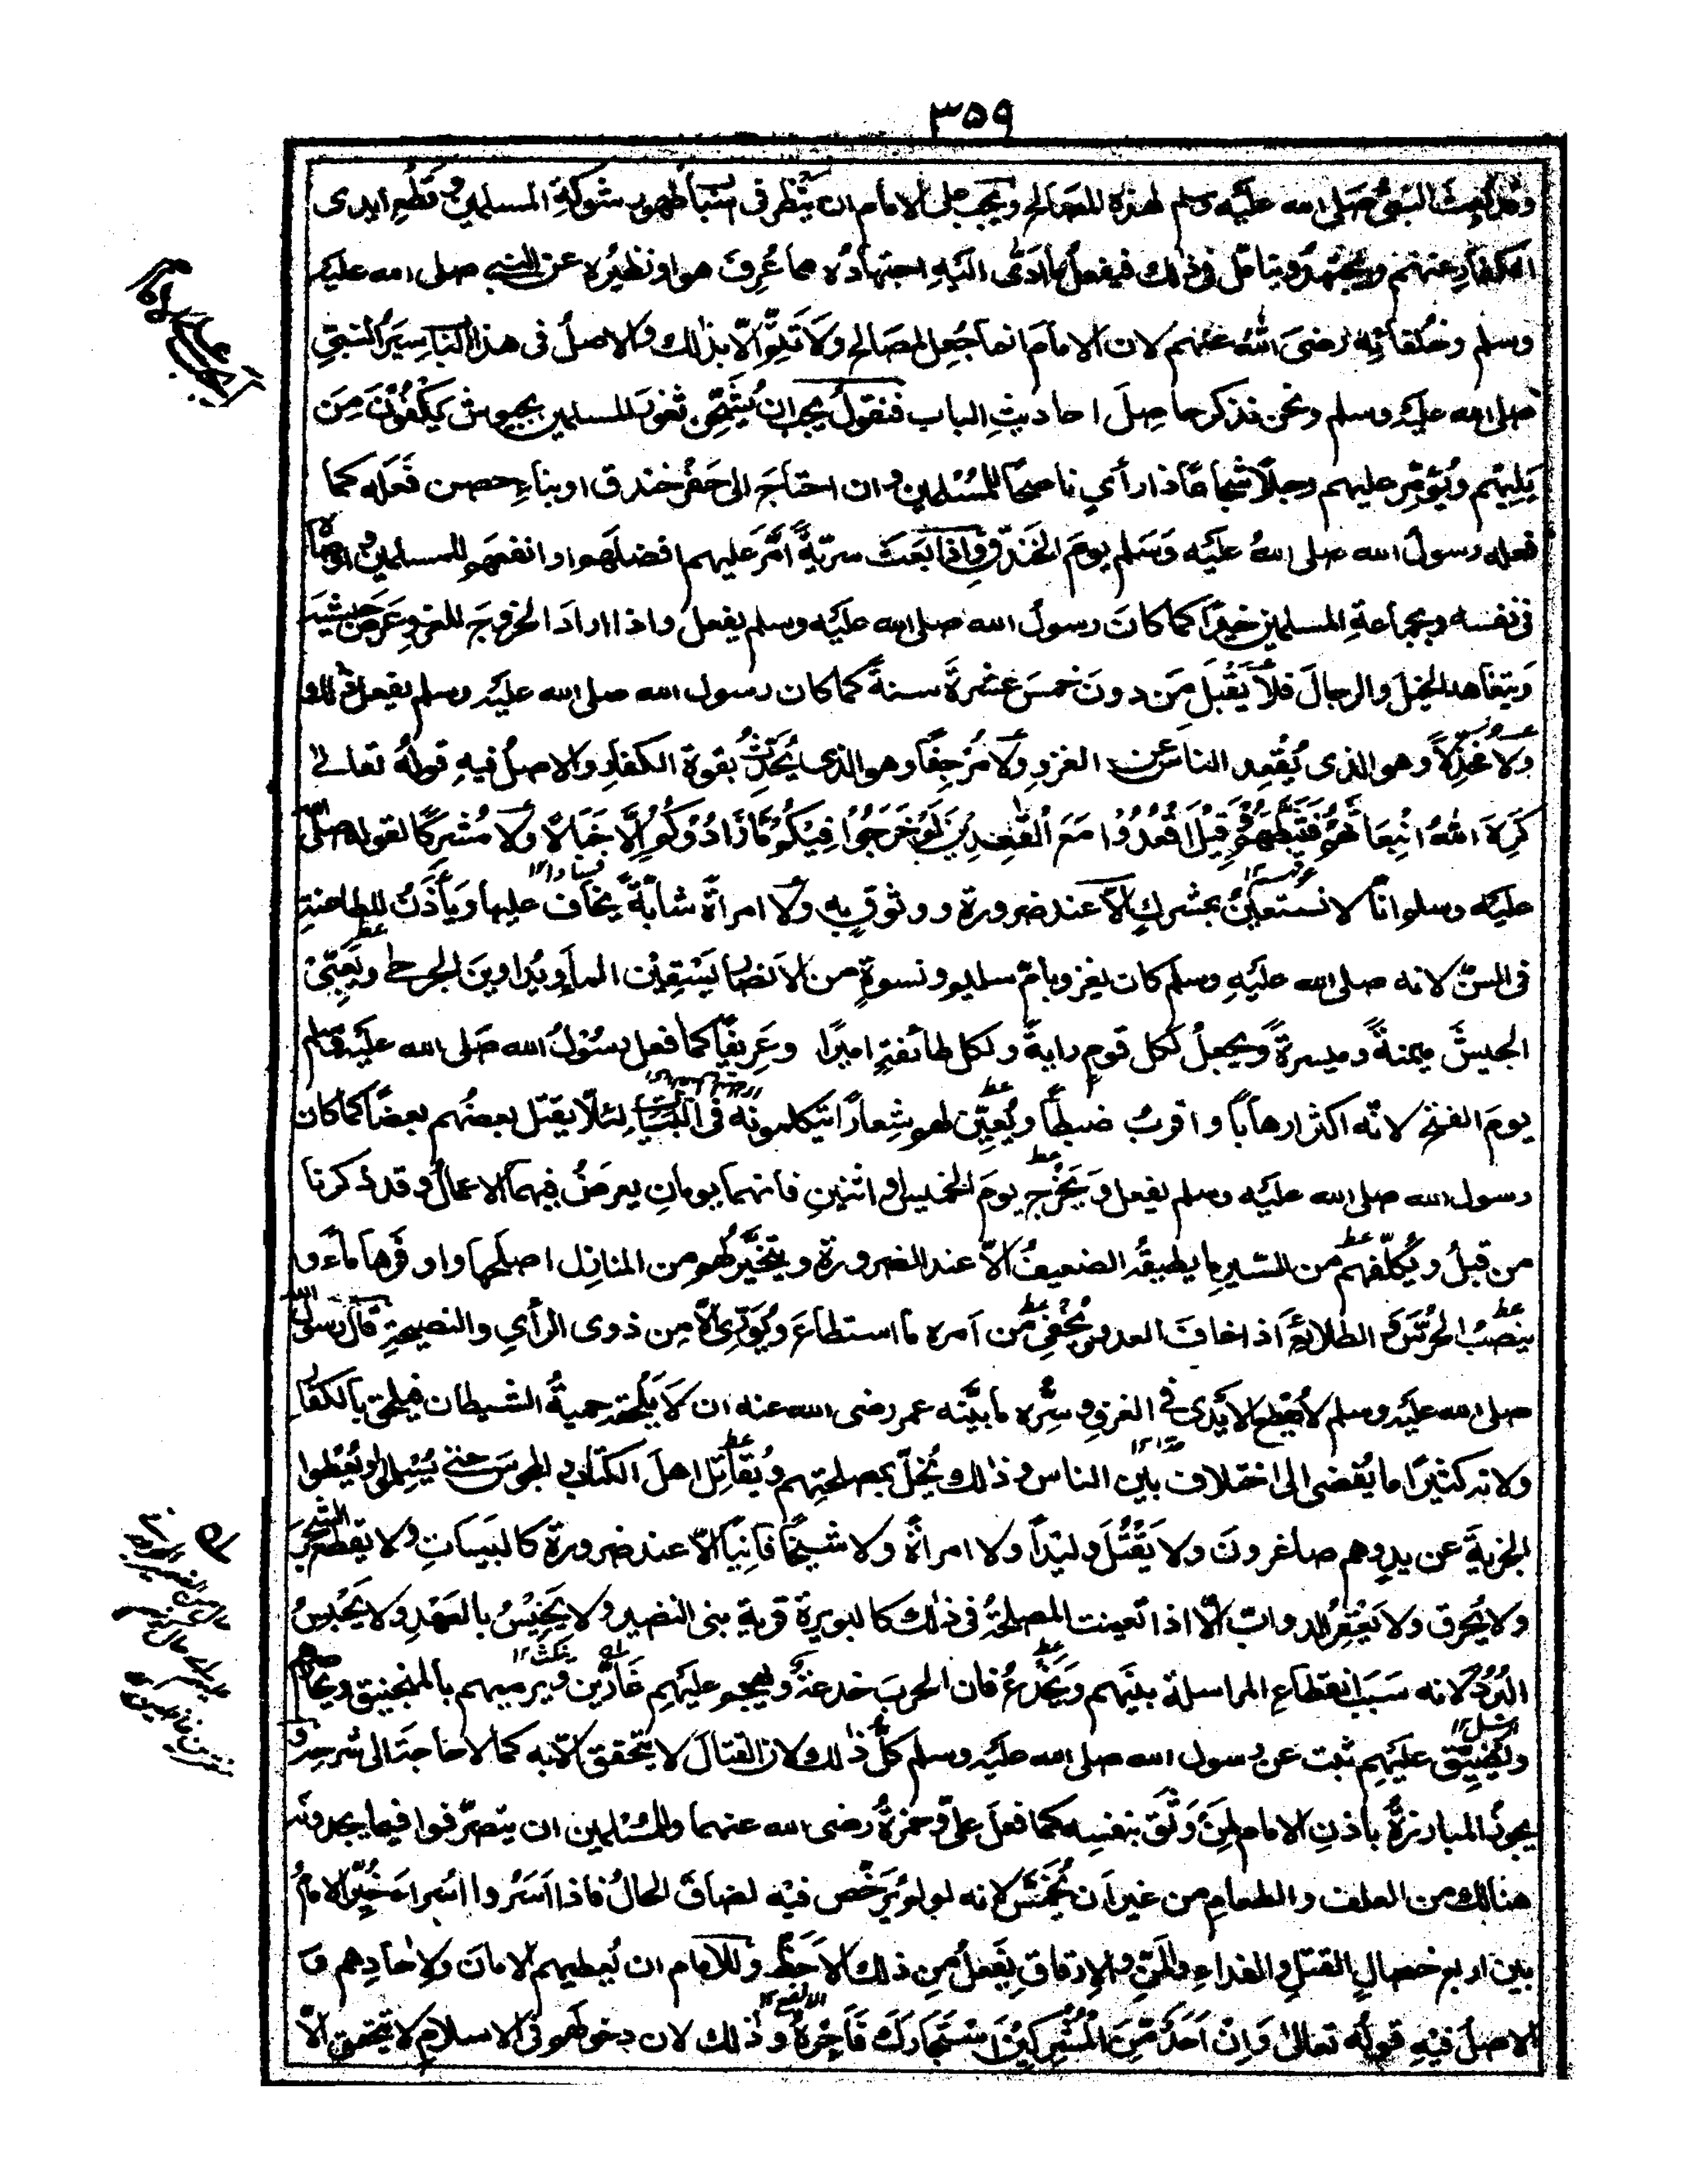 ٣٥٩
وقد بعث النبي صلى الله عليه وسلم لهذه المصالح ويجب على الامام ان ينظر فى اسباب ظهور شوكة المسلمين وقطع ايدى
الكفار عنهم ويجتهد ويتأمل فى ذلك فيفعل ما ادى اليه اجتهاده مما عرف هو او نظيره عن النبي صلى الله عليه
وسلم وخلفائه رضى الله عنهم لان الامام انما جعل لمصالح ولا تتم الا بذلك والاصل فى هذا الباب سير النبي
صلى الله عليه وسلم ونحن نذكر حاصل احاديث الباب فنقول يجب ان يشحن ثغور المسلمين بجيوش يكفون من
يليهم ويؤمر عليهم رجلا شجاعا ذا رأي ناصحا للمسلمين وان احتاج الى حفر خندق او بناء حصن فعله كما
فعله رسول الله صلى الله عليه وسلم يوم الخندق واذا بعث سرية امر عليهم افضلهم او انفعهم للمسلمين واوصاه
فى نفسه وبجماعة المسلمين خيرا كما كان رسول الله صلى الله عليه وسلم يفعل واذا اراد الخروج للغزو عرض جيشه
ويتعاهد الخيل والرجال فلا يقبل من دون خمس عشرة سنة كما كان رسول الله صلى الله عليه وسلم يفعل ذلك
ولا مخذلا وهو الذى يقعد الناس عن الغزو ولا مرجفا وهو الذى يحدث بقوة الكفار والاصل فيه قوله تعالى
كره الله انبعاثهم فثبطهم وقيل اقعدوا مع القعدين لو خرجوا فيكم ما زادوكم الا خبالا ولا مشركا لقوله صلى الله
عليه وسلم انا لا نستعين بمشرك الا عند ضرورة ووثوق به ولا امرأة شابة يخاف عليها ويأذن للطاعنة
فى السن لانه صلى الله عليه وسلم كان يغزو بام سليم ونسوة من الانصار يسقين الماء ويداوين الجرحى ويعبى
الجيش ميمنة وميسرة ويجعل لكل قوم راية ولكل طائفة اميرا وعريفا كما فعل رسول الله صلى الله عليه وسلم
يوم الفتح لانه اكثر ارهابا واقرب ضبطا ويعين لهم شعارا يتكلمونه فى البيات لئلا يقتل بعضهم بعضا كما كان
رسول الله صلى الله عليه وسلم يفعل ويخرج يوم الخميس او اثنين فانهما يومان يعرض فيهما الاعمال وقد ذكرنا
من قبل ويكلفهم من السير ما يطيقه الضعيف الا عند الضرورة ويتخير لهم من المنازل اصلحها واوفرها ماء و
ينصب الحرس والطلائع اذا خاف العدو ويخفى من امره ما استطاع ويورى الا من ذوى الرأي والنصيحة قال رسول الله
صلى الله عليه وسلم لا تقطع الايدى فى الغزو وسره ما بينه عمر رضى الله عنه ان لا يلحقه حمية الشيطان فيلحق بالكفار
ولانه كثيرا ما يفضى الى اختلاف بين الناس وذلك يخل بمصلحتهم ويقاتل اهل الكتاب والمجوس حتى يسلموا او يعطوا
الجزية عن يد وهم صاغرون ولا يقتل وليدا ولا امرأة ولا شيخا فانيا الا عند ضرورة كالبيات ولا يقطع الشجر
ولا يحرق ولا يعقر الدواب الا اذا تعينت المصلحة فى ذلك كالبويرة قرية بنى النضير ولا يخيس بالعهد ولا يحبس
البرد لانه سبب انقطاع المراسلة بينهم ويخدع فان الحرب خدعة ويهجم عليهم غارين ويرميهم بالمنجنيق ويحاصرهم
ويضيق عليهم ثبت عن رسول الله صلى الله عليه وسلم كل ذلك ولان القتال لا يتحقق الا به كما لا حاجة الى شرحه و
يجوز المبارزة باذن الامام لمن وثق بنفسه كما فعل على وحمزة رضى الله عنهما وللمسلمين ان يتصرفوا فيما يجدونه
هنالك من العلف والطعام من غير ان يخمس لانه لو لم يرخص فيه لضاق الحال فاذا اسروا اسراء خير الامام
بين اربع خصال القتل والفداء والمن والارقاق يفعل من ذلك الاحظ وللامام ان يعطيهم الامان ولاحادهم و
الاصل فيه قوله تعالى وان احد من المشركين استجارك فاجره وذلك لان دخولهم فى الاسلام لا يتحقق الا